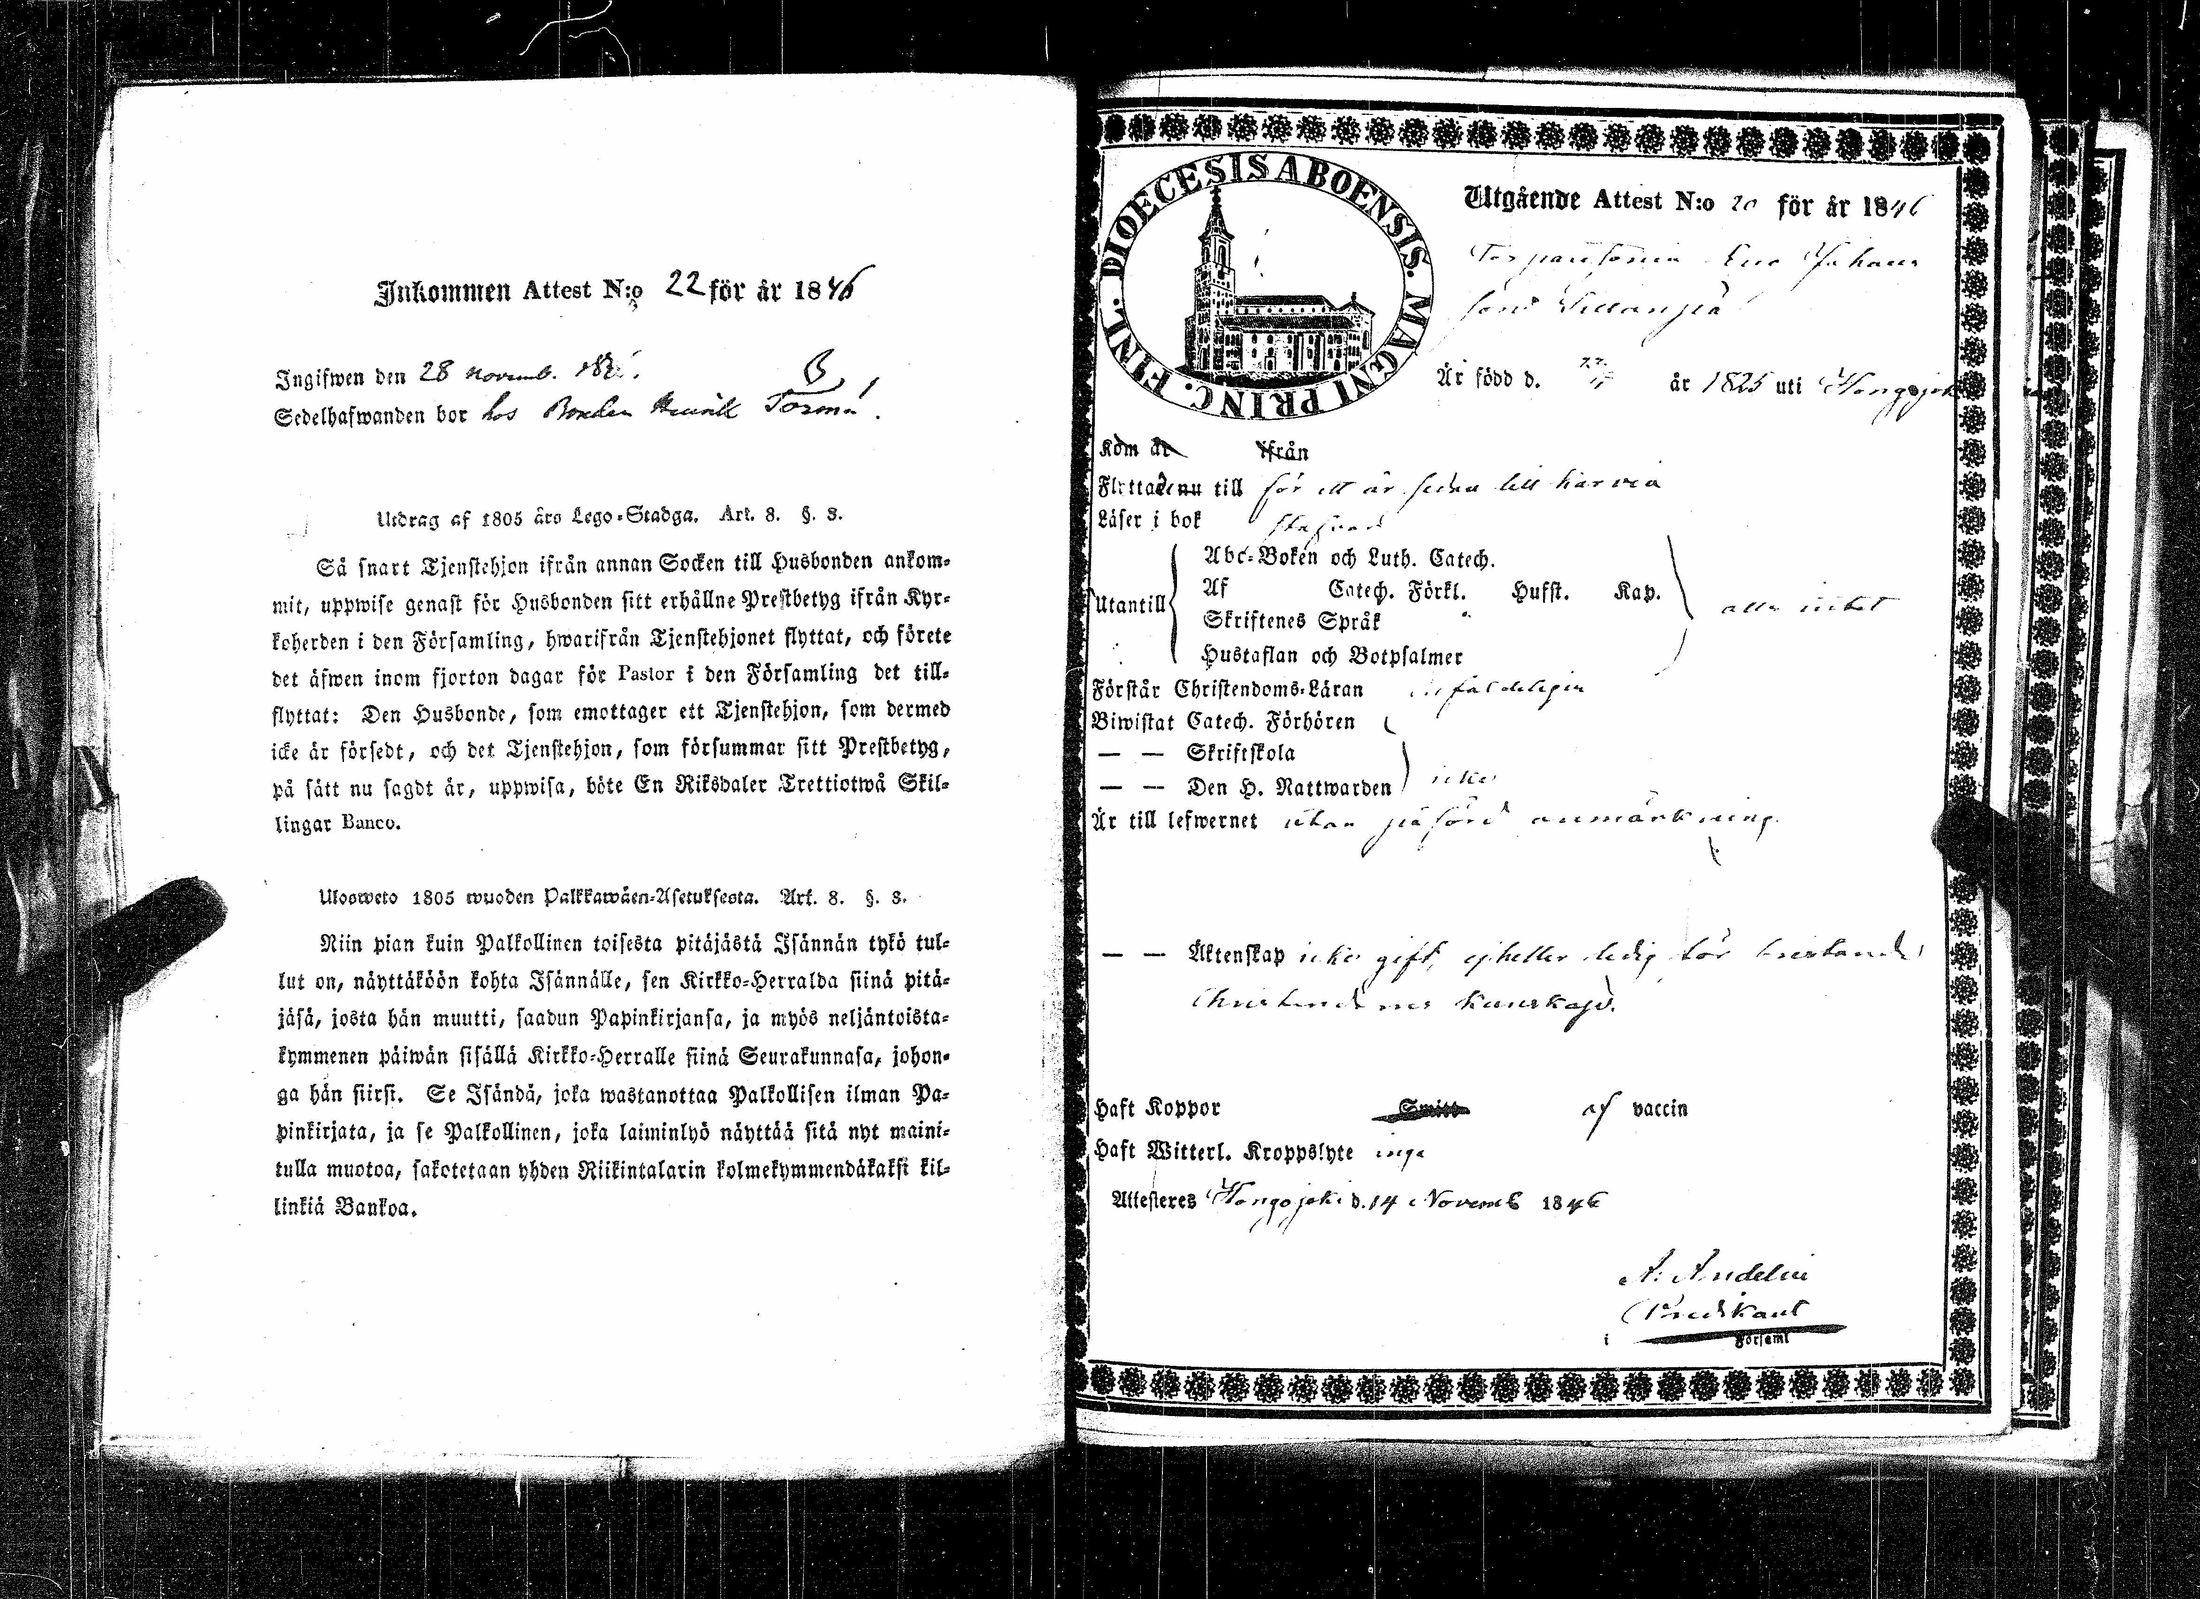 Inkommen Attest N:o 22 för år 1846
Ingifwen den 28 novemb. 1846.
Sedelhafwanden bor hos Bonden Henrik Tormä.
Utdrag af 1805 års Lego-Stadga. Art. 8. §. 3.
Så snart Tjenstehjon ifrån annan Socken till Husbonden ankom-
mit, uppwise genast för Husbonden sitt erhållne Prestbetyg ifrån Kyr-
koherden i den Församling, hwarifrån Tjenstehjonet flyttat, och förete
det äfwen inom fjorton dagar för Pastor i den Församling det till-
flyttat: Den Husbonde, som emottager ett Tjenstehjon, som dermed
icke är försedt, och det Tjenstehjon, som försummar sitt Prestbetyg,
på sätt nu sagdt är, uppwisa, böte En Riksdaler Trettiotwå Skil-
lingar Banco.
Ulosweto 1805 wuoden Palkkawäen-Asetuksesta. Art. 8. §. 3.
Niin pian kuin Palkollinen toisesta pitäjästä Isännän tykö tul-
lut on, näyttäköön kohta Isännälle, sen Kirkko-Herralda siinä pitä-
jäsä, josta hän muutti, saadun Papinkirjansa, ja myös neljäntoista-
kymmenen päiwän sisällä Kirkko-Herralle siinä Seurakunnasa, johon-
ga hän siirsi. Se Isändä, joka wastanottaa Palkollisen ilman Pa-
pinkirjata, ja se Palkollinen, joka laiminlyö näyttää sitä nyt maini-
tulla muotoa, sakotetaan yhden Riikintalarin kolmekymmendäkaksi kil-
linkiä Bankoa.
DIOECESIS ABOENSIS. MAGNI PRINC. FINL.
Utgående Attest N:o 20 för år 1846
Johans
Är född d. år 1825 uti Hongojoki
Kom år ifrån
Flyttade nu till för ett år sedan till Karvia
Läser i bok
Utantill
Abc-Boken och Luth. Catech.
Af Catech. Förkl. Husst. Kap.
Skriftenes Språk
Hustaflan och Botpsalmer
allz intet
Förstår Christendoms-Läran
Biwistat Catech. Förhören
— — Skriftskola
— — Den H. Nattwarden icke
Är till lefwernet utan påförd anmärkning
— — Äktenskap icke gift, ejheller ledig för bristande
Christendomes kunskap.
Haft Koppor Smitt af vaccin
Haft Witterl. Kroppslyte inga
Attesteres Hongojoki d. 14 Novemb 1846
A. Andelin
Predikant
i Församl